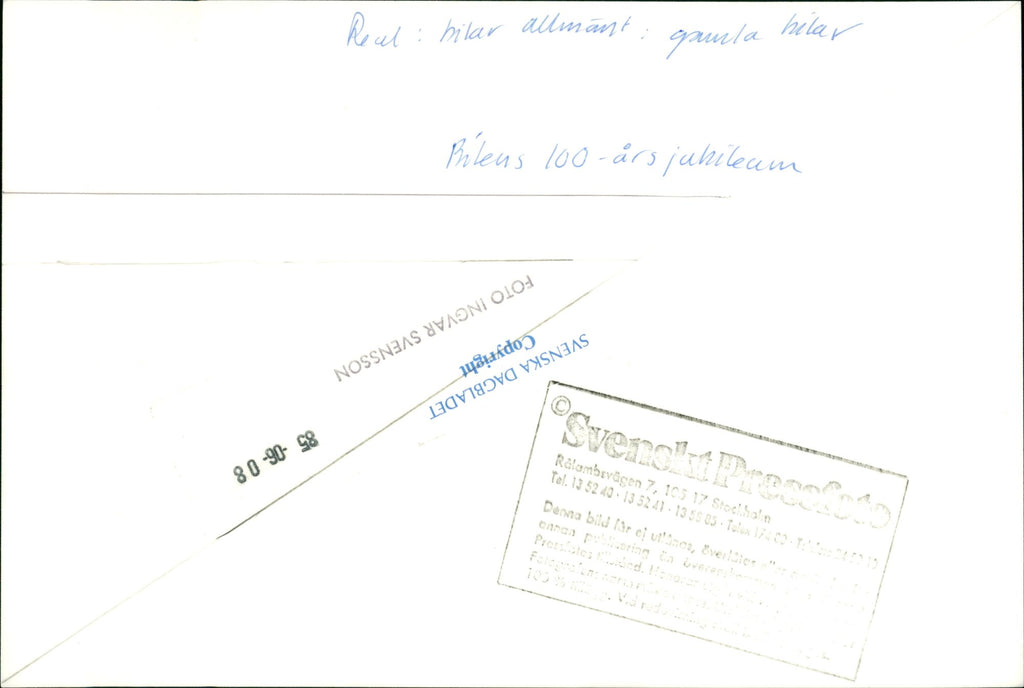 Real : bilar allmänt : gamla bilar
Bilens 100-års jubileum
FOTO INGVAR SVENSSON
Copyright
SVENSKA DAGBLADET
85 -06- 08
© Svenskt Pressfoto
Rålambsvägen 7, 105 17 Stockholm
Tel. 13 52 40 · 13 52 41 · 13 56 85 · Telex 174 00 ·
Denna bild får ej utlånas,
annan publicering än
Pressfotos tillstånd.